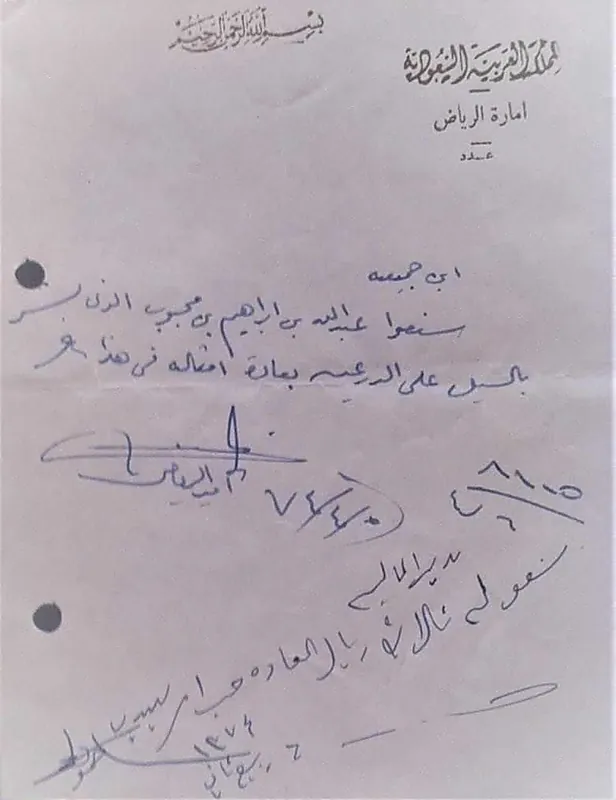 بسم الله الرحمن الرحيم
المملكة العربية السعودية
امارة الرياض
عدد
ابن جميعه
سنعوا عبدالله بن ابراهيم بن محجوب الذى بشر
بالسيل على الدرعيه بعادة امثاله فى هذا
امير الرياض
٧٤/٤/٥
٨١١٥
٤/٦
مدير الماليه
سنعو له ثلاث ريال العاده حسب امر
٦ ربيع ثاني ١٣٧٤